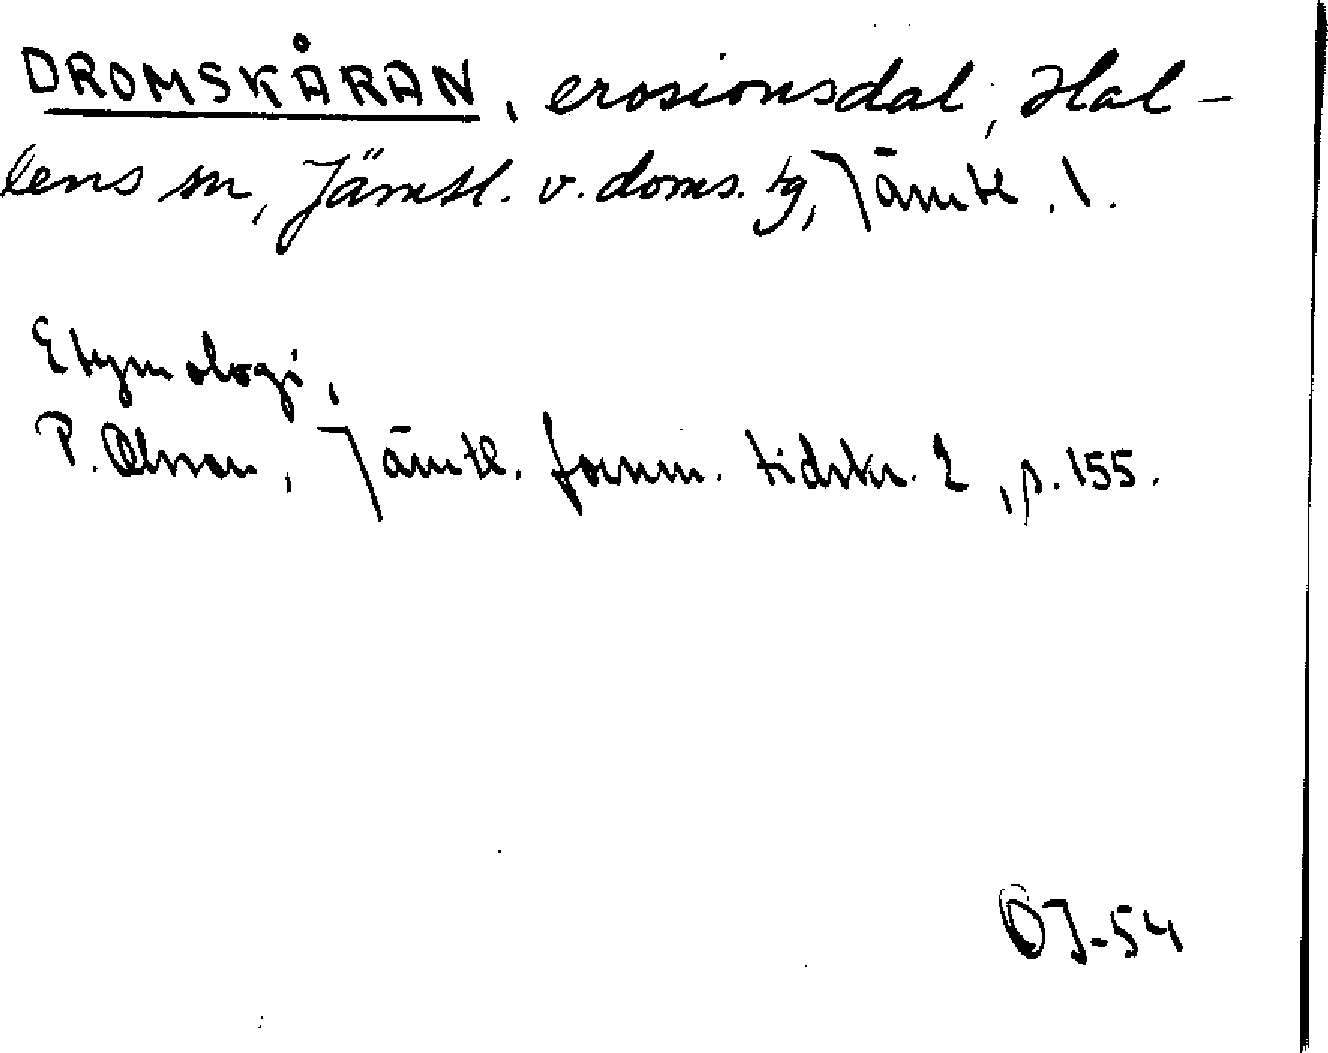 DROMSKÅRAN, erosionsdal, Hal-
lens sn, Jämtl. v. doms. tg, Jämtl. l.
Etymologi,
P. Olsson, Jämtl. fornm. tidskr. 2, s. 155.
OJ-54